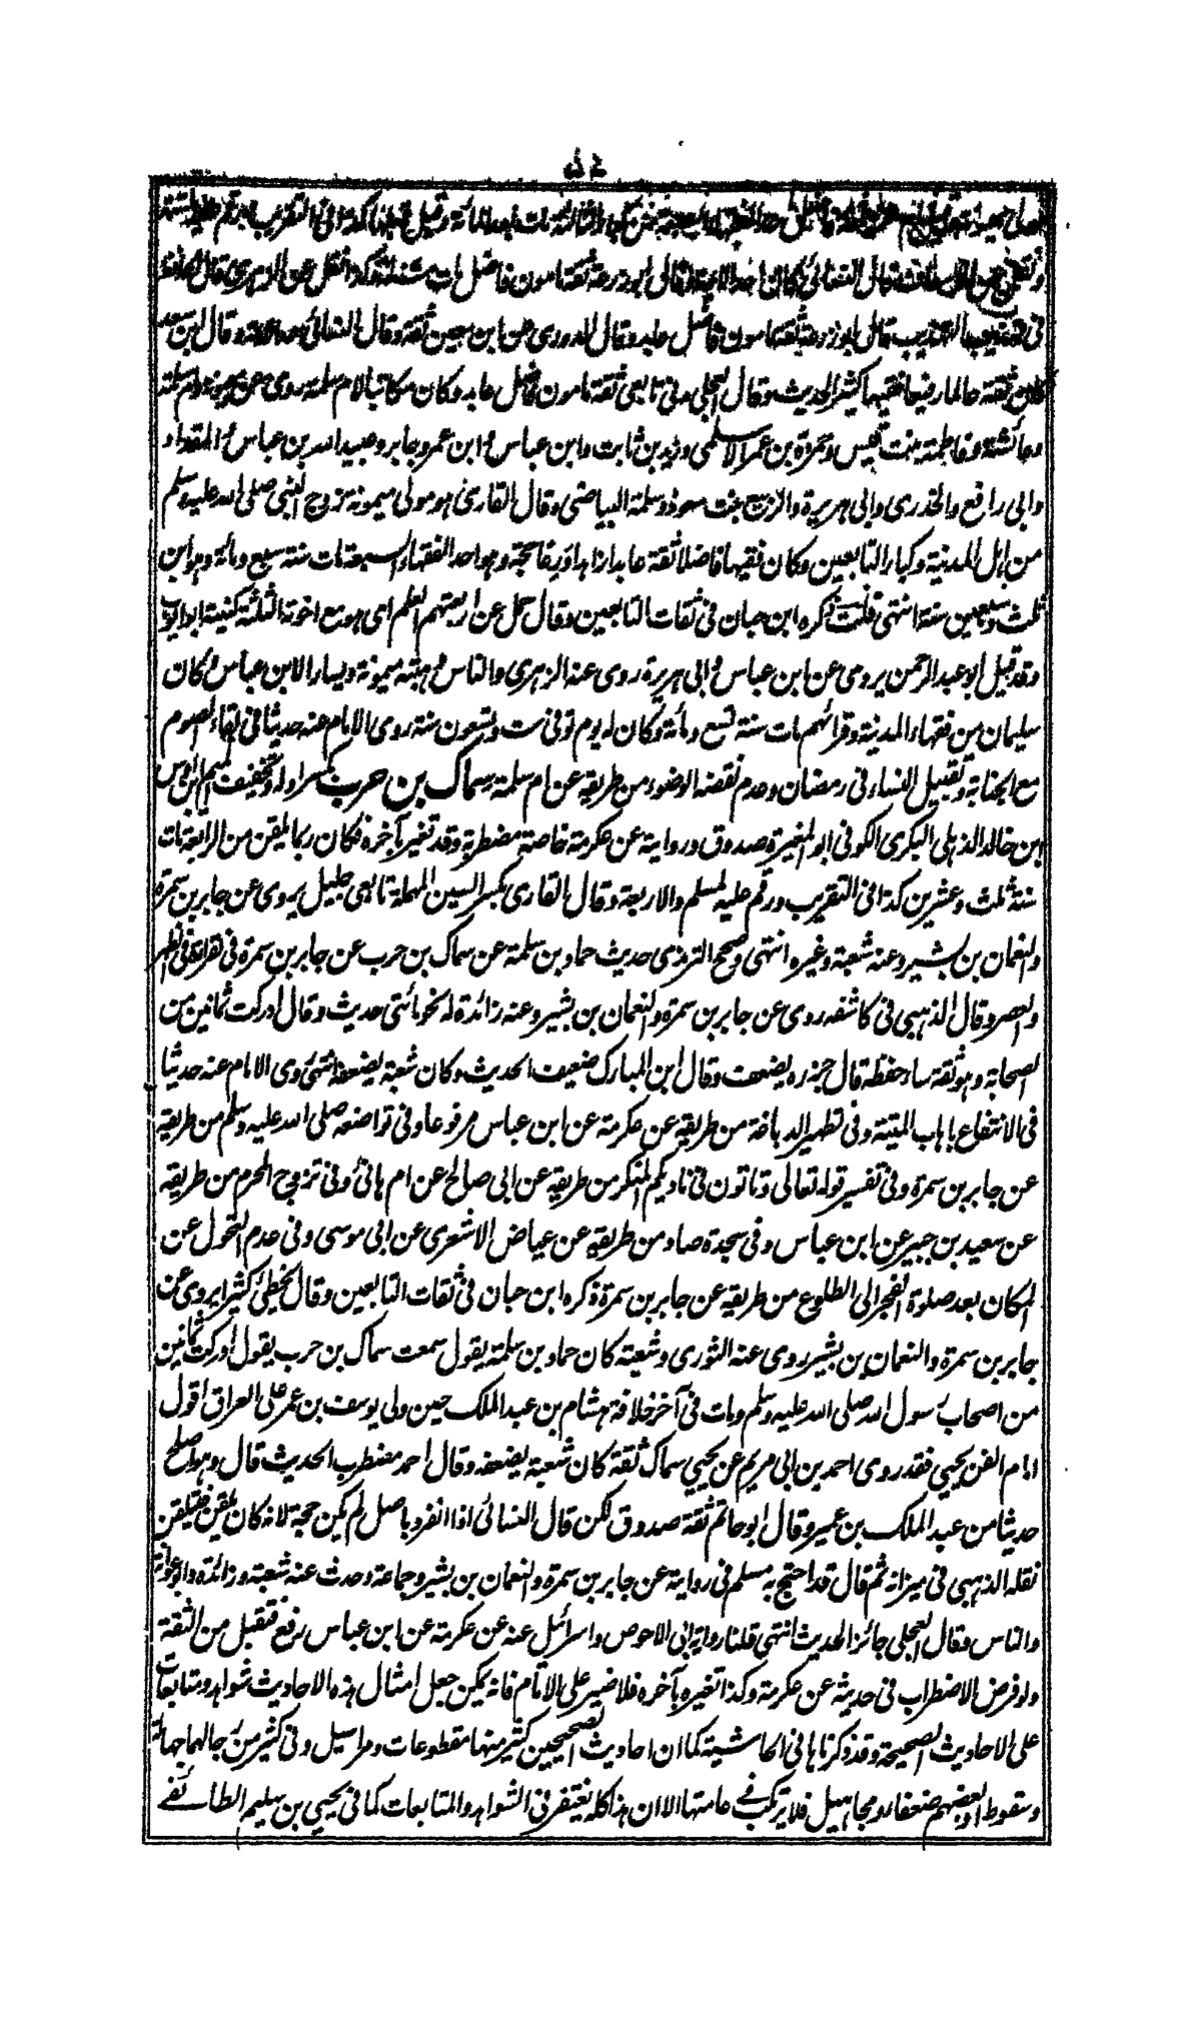 وقال النسائي كان احد الائمة وقال ابو زرعة ثقة مامون فاضل مات
في تهذيب التهذيب قال ابو زرعة ثقة مامون فاضل عابد وقال الدوري عن ابن معين ثقة وقال النسائي احد الائمة وقال ابن سعد
كان ثقة عالما رفيعا فقيها كثير الحديث وقال العجلي مدني تابعي ثقة مامون فاضل عابد وكان مكاتبا لام سلمة روى عن ميمونة وام سلمة
وعائشة وفاطمة بنت قيس وحمزة بن عمر الاسلمي وزيد بن ثابت وابن عباس وابن عمر وجابر وعبيد الله بن عباس والمقداد
وابي رافع والخدري وابي هريرة والربيع بنت معوذ وسلمة البياضي وقال القاري هو مولى ميمونة زوج النبي صلى الله عليه وسلم
من اهل المدينة وكبار التابعين وكان فقيها فاضلا ثقة عابدا زاهدا ورعا حجة وهو احد الفقهاء السبعة مات سنة سبع ومائة وهو ابن
ثلث وسبعين سنة انتهى قلت ذكره ابن حبان في ثقات التابعين وقال حمل عن اربعتهم العلم اي هو مع اخوته الثلثة كنيته ابو ايوب
وقد قيل ابو عبد الرحمن يروي عن ابن عباس وابي هريرة روى عنه الزهري والناس وهبته ميمونة ويسارا لابن عباس وكان
سليمان من فقهاء المدينة وقرائهم مات سنة تسع ومائة وكان له يوم توفي ست وتسعون سنة روى الامام عنه حديثا في بقاء الصوم
مع الجنابة وتقبيل النساء في رمضان وعدم نقضه الوضوء من طريقه عن ام سلمة سماك بن حرب بكسر اوله وتخفيف الميم ابن اوس
ابن خالد الذهلي البكري الكوفي ابو المغيرة صدوق ورواية عن عكرمة خاصة مضطربة وقد تغير بآخره فكان ربما يلقن من الرابعة مات
سنة ثلث وعشرين كذا في التقريب ورقم عليه لمسلم والاربعة وقال القاري بكسر السين المهملة تابعي جليل يروي عن جابر بن سمرة
والنعمان بن بشير وعنه شعبة وغيره انتهى وصحح الترمذي حديث حماد بن سلمة عن سماك بن حرب عن جابر بن سمرة في القراءة في الظهر
والعصر وقال الذهبي في كاشفه روى عن جابر بن سمرة والنعمان بن بشير وعنه زائدة له نحو مائتي حديث وقال ادركت ثمانين من
الصحابة وهو ثقة ساء حفظه قال جزره يضعف وقال ابن المبارك ضعيف الحديث وكان شعبة يضعفه انتهى روى الامام عنه حديثا
في الانتفاع باهاب الميتة وفي تطهير الدباغة من طريقه عن عكرمة عن ابن عباس مرفوعا وفي تواضعه صلى الله عليه وسلم من طريقه
عن جابر بن سمرة وفي تفسير قوله تعالى وتاتون في ناديكم المنكر من طريقه عن ابي صالح عن ام هانئ وفي تزوج المحرم من طريقه
عن سعيد بن جبير عن ابن عباس وفي سجدة صاد من طريقه عن عياض الاشعري عن ابي موسى وفي عدم التحول عن
المكان بعد صلوة الفجر الى الطلوع من طريقه عن جابر بن سمرة ذكره ابن حبان في ثقات التابعين وقال يخطئ كثيرا يروي عن
جابر بن سمرة والنعمان بن بشير روى عنه الثوري وشعبة كان حماد بن سلمة يقول سمعت سماك بن حرب يقول ادركت ثمانين
من اصحاب رسول الله صلى الله عليه وسلم ومات في آخر خلافة هشام بن عبد الملك حين ولي يوسف بن عمر على العراق اقول
امام الفن يحيى فقد روى احمد بن ابي مريم عن يحيى سماك ثقة كان شعبة يضعفه وقال احمد مضطرب الحديث قال وهو اصلح
حديثا من عبد الملك بن عمير وقال ابو حاتم ثقة صدوق لكن قال النسائي اذا انفرد باصل لم يكن حجة لانه كان يلقن فيتلقن
نقله الذهبي في ميزانه ثم قال قد احتج به مسلم في رواية عن جابر بن سمرة والنعمان بن بشير وجماعة وحدث عنه شعبة وزائدة وابو عوانة
والناس وقال العجلي جائز الحديث انتهى قلنا رواية ابي الاحوص واسرائيل عنه عن عكرمة عن ابن عباس رفع فتقبل من الثقة
ولو فرض الاضطراب في حديثه عن عكرمة وكذا تغيره بآخره فلا ضير على الامام فانه يمكن جعل امثال هذه الاحاديث شواهد ومتابعات
على الاحاديث الصحيحة وقد ذكرناها في الحاشية كما ان احاديث الصحيحين كثير منها مقطوعات ومراسيل وفي كثير من رجالها جهالة
وسقوط او بعضهم ضعفاء ومجاهيل فلا يرتكب في عامتها الا ان هذا كله يغتفر في الشواهد والمتابعات كما في يحيى بن سليم الطائفي